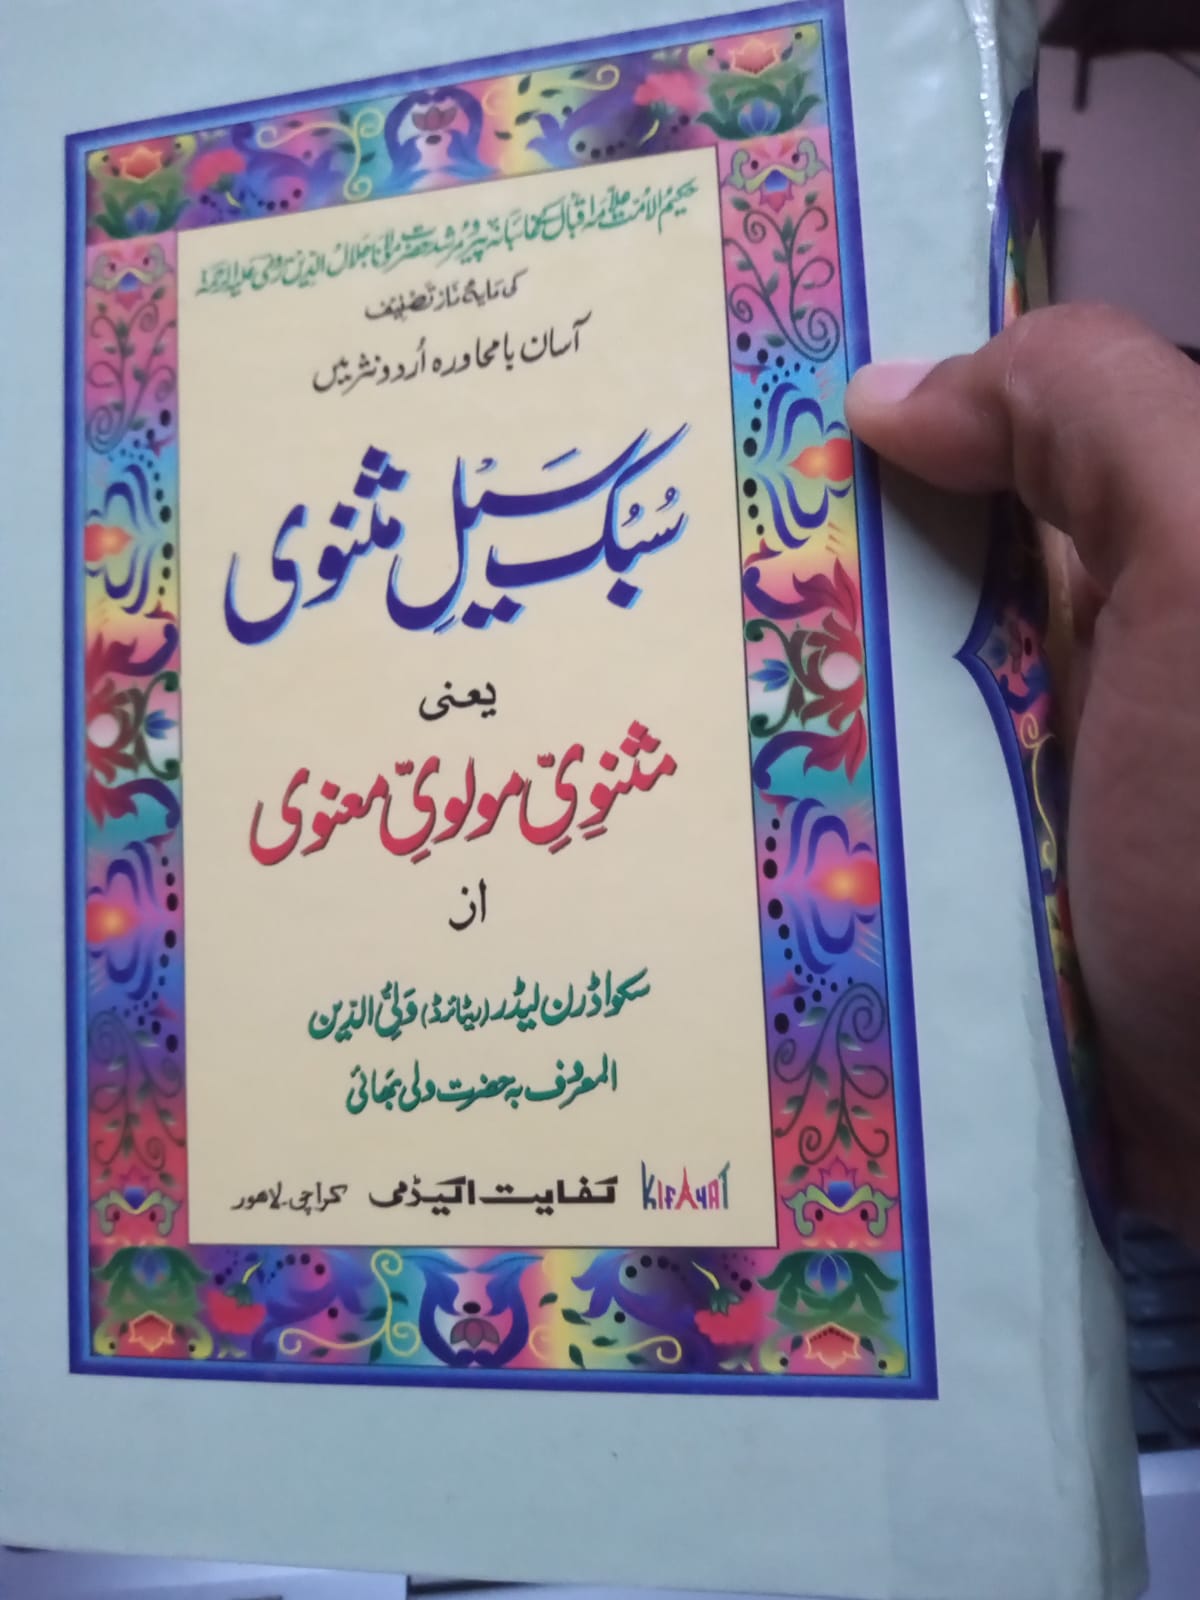 حکیم الامت علامہ اقبال کے غائبانہ پیر و مرشد حضرت مولانا جلال الدین رومی علیہ الرحمۃ
کی مایہ ناز تصنیف
آسان با محاورہ اُردو نثر میں
سُبک سَیلِ مثنوی
یعنی
مثنویِّ مولویِّ معنوی
از
سکواڈرن لیڈر (ریٹائرڈ) وَلیُّ الدّین
المعروف بہ حضرت ولی بھائی
KIFAYAT کفایت اکیڈمی کراچی۔لاہور